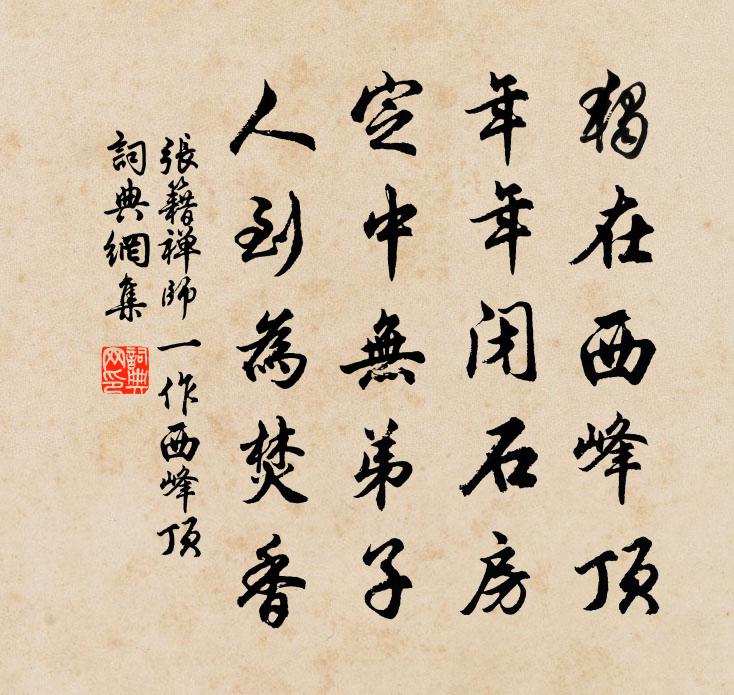 獨在西峰頂
年年閉石房
定中無弟子
人到為焚香
張籍禪師一作西峰頂
詞典網集
詞典網印